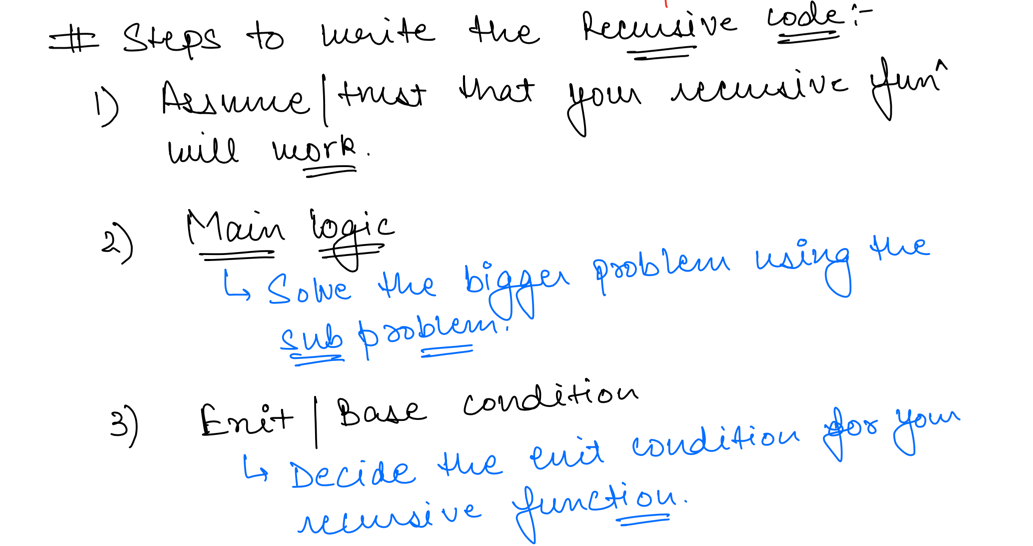 # Steps to write the Recursive code :-
1) Assume | trust that your recursive funⁿ
will work.
2) Main logic
↳ Solve the bigger problem using the
sub problem.
3) Exit | Base condition
↳ Decide the exit condition for your
recursive function.